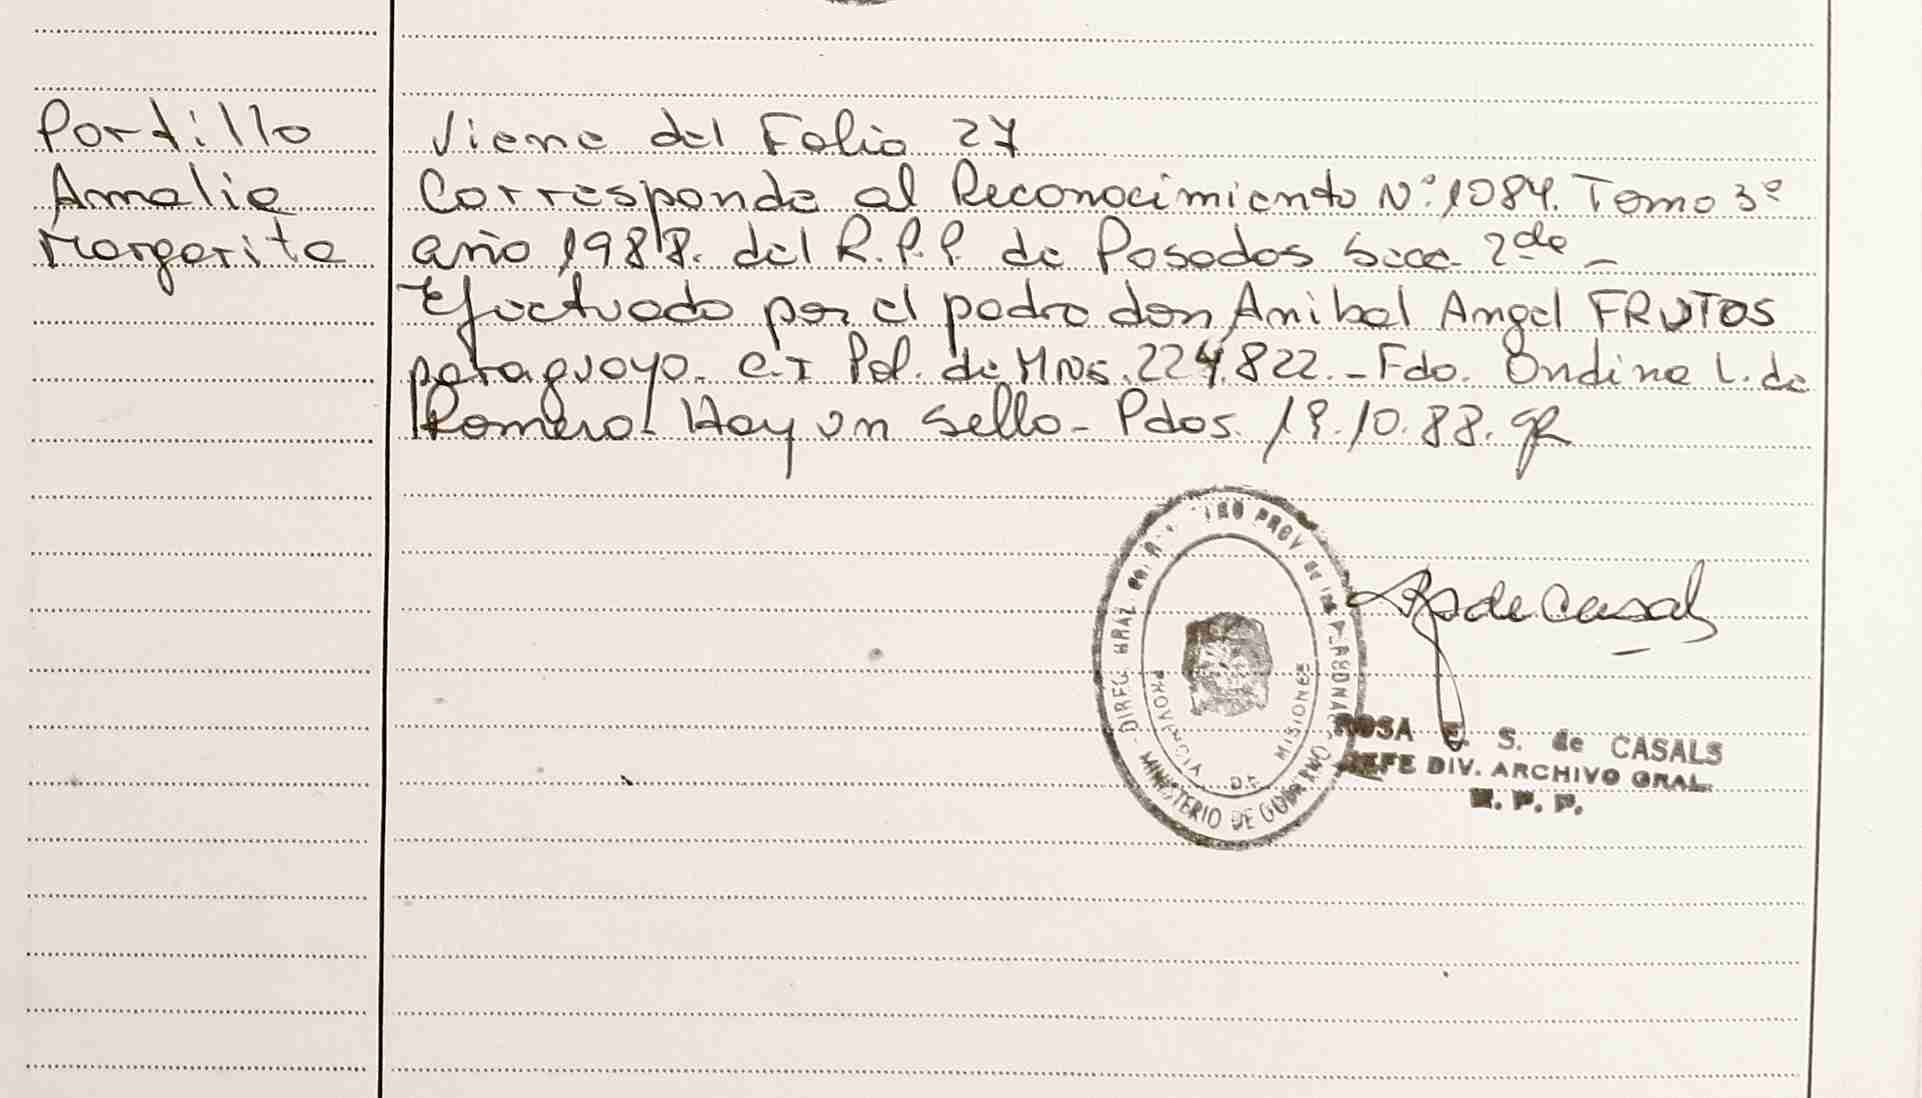 Portillo
Amalia
Margarita
Viene del Folio 27
Corresponde al Reconocimiento Nº 1084. Tomo 3º
año 1988. del R.P.P. de Posadas Secc. 2da –
Efectuado por el padre don Anibal Angel FRUTOS
paraguayo. C.I Pol. de Mns. 224.822. – Fdo. Ondina L. de
Romero. Hay un sello – Pdas. 19.10.88.
PROV de las
PROVINCIA DE MISIONES
MINISTERIO DE GOBIERNO
de Casals
ROSA E. S. de CASALS
JEFE DIV. ARCHIVO GRAL.
R. P. P.